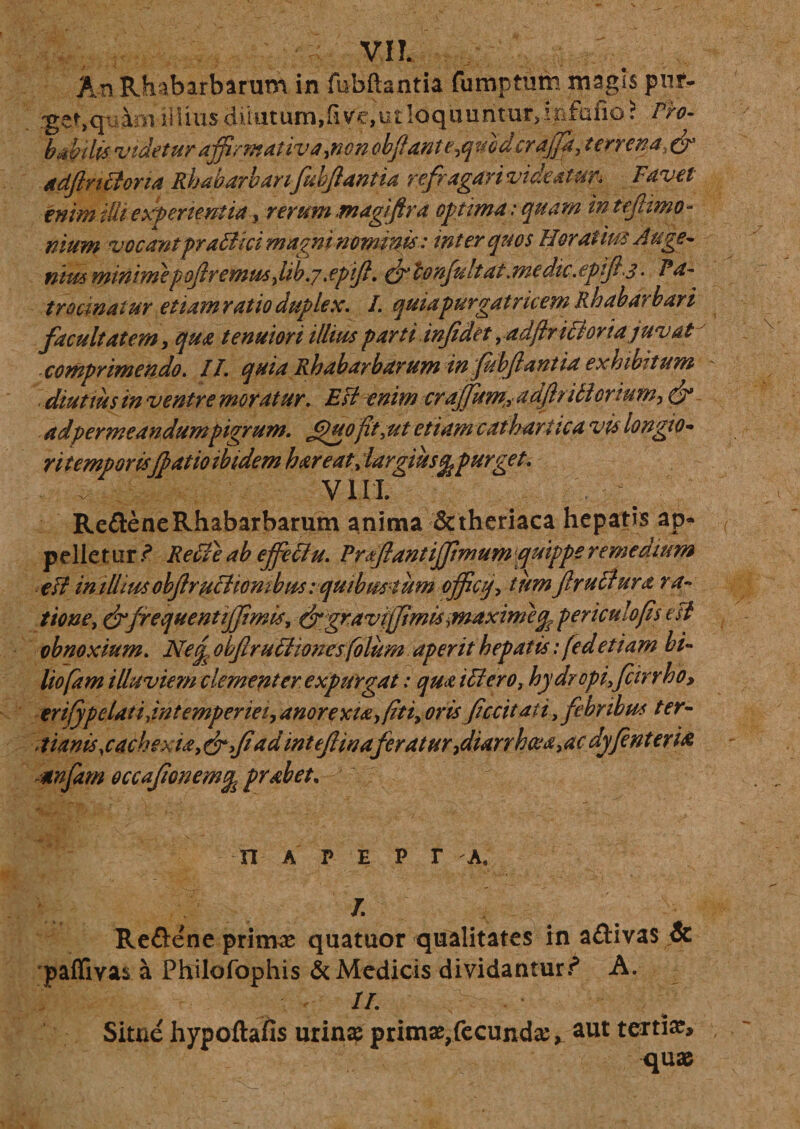 VII.
An Rhabarbarum in ſubſtantia ſumptum magis pur-
get, quàm illius dilutum, ſive, ut loquuntur, infuſio? Pro-
babilis videtur affirmativa, non obſtante, quòd craſſa, terrena, &
adſtrictoria Rhabarbari ſubſtantia refragari videatur. Favet
enim illi experientia, rerum magiſtra optima: quam in teſtimo-
nium vocant practici magni nominis: inter quos Horatius Auge-
nius minimè poſtremus, lib. 7. epiſt. & conſultat. medic. epiſt. 3. Pa-
trocinatur etiam ratio duplex. I. quia purgatricem Rhabarbari
facultatem, quæ tenuiori illius parti inſidet, adſtrictoria juvat
comprimendo. II. quia Rhabarbarum in ſubſtantia exhibitum
diutius in ventre moratur. Eſt enim craſſum, adſtrictorium, &
ad permeandum pigrum. Quo fit, ut etiam cathartica vis longio-
ri temporis ſpatio ibidem hæreat, largiusq́; purget.
VIII.
Rectène Rhabarbarum anima & theriaca hepatis ap-
pelletur? Rectè ab effectu. Præſtantiſſimum quippe remedium
eſt in illius obſtructionibus: quibus tum officij, tum ſtructuræ ra-
tione, & frequentiſſimis, & graviſſimis, maximèq́; periculoſis eſt
obnoxium. Neq́; obſtructiones ſolùm aperit hepatis: ſed etiam bi-
lioſam illuviem clementer expurgat: quæ ictero, hydropi, ſcirrho,
eriſypelati, intemperiei, anorexiæ, ſiti, oris ſiccitati, febribus ter-
tianis, cachexiæ, &, ſi ad inteſtina feratur, diarrhœæ, ac dyſenteriæ
anſam occaſionemq́; præbet.
ΠΑΡΕΡΓΑ.
I.
Rectène primæ quatuor qualitates in activas &
paſſivas à Philoſophis & Medicis dividantur? A.
II.
Sitnè hypoſtaſis urinæ primæ, ſecundæ, aut tertiæ,
quæ